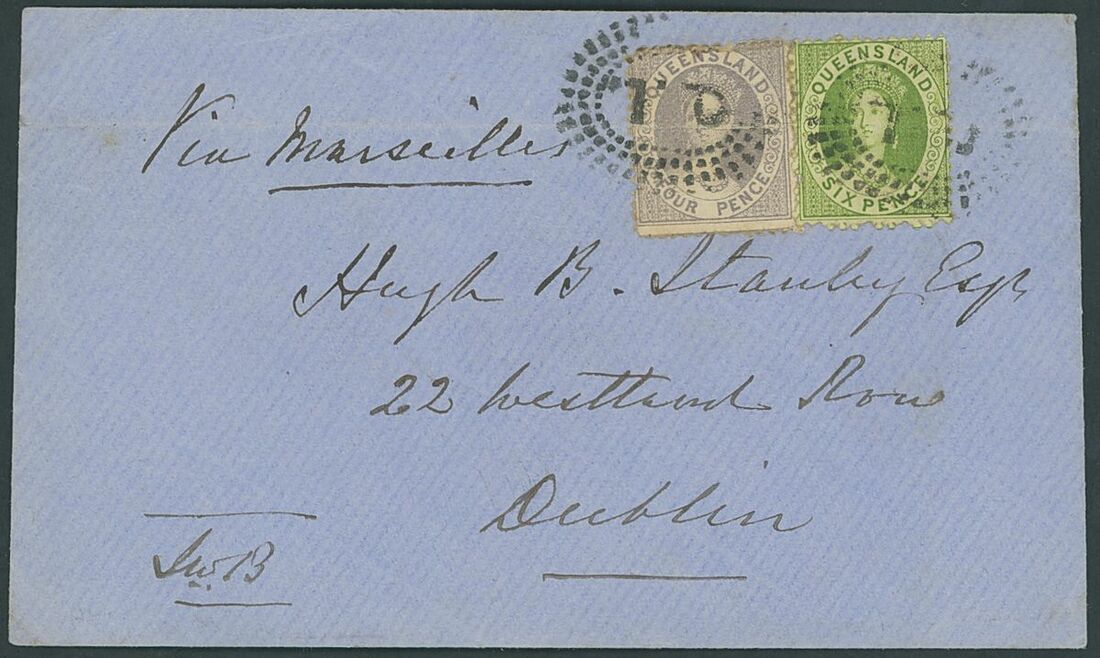 QUEENSLAND
FOUR PENCE
QUEENSLAND
SIX PENCE
Via Marseilles
Hugh B. Stanley Esqr
22 Westland Row
Dublin